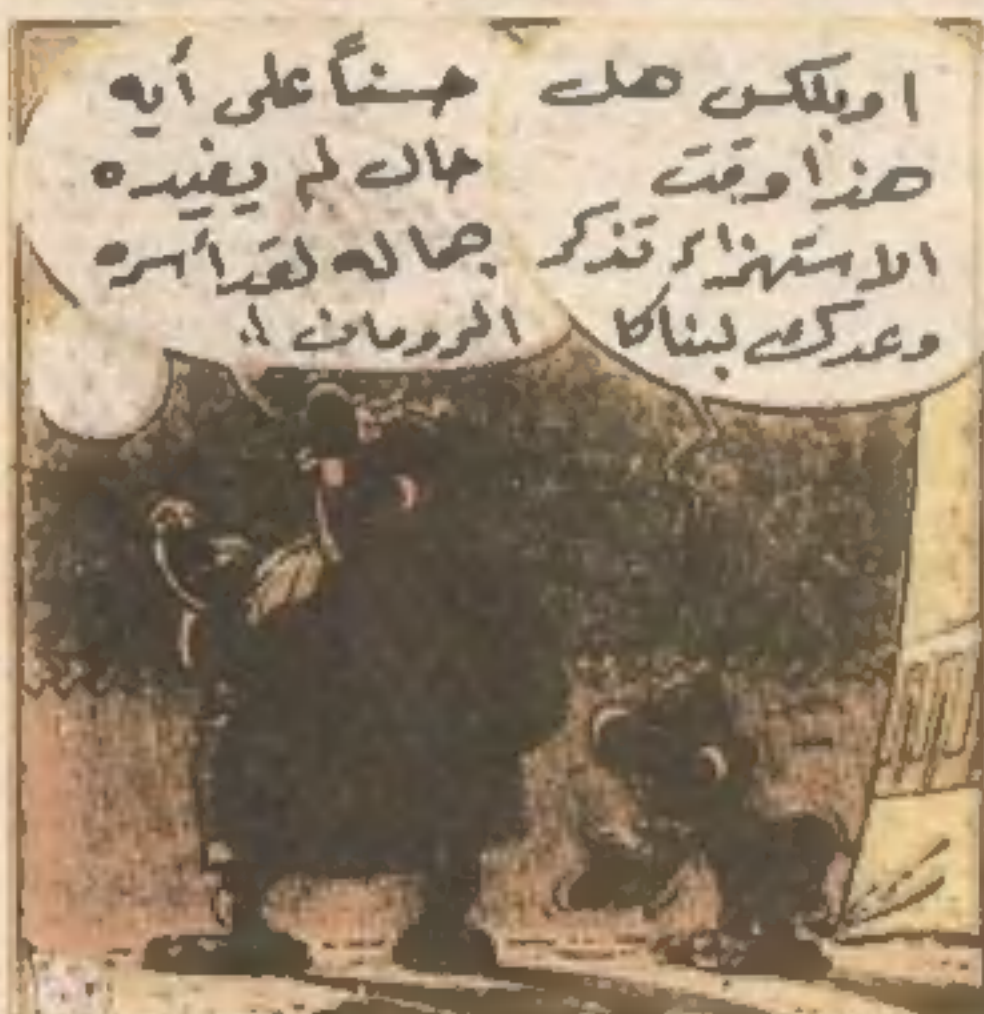 اوبلكس هل
هذا وقت
الاستهزاء تذكر
وعدك لبناكا
حسناً على أيه
حال لم يفيده
جماله لقد أسره
الرومان !!